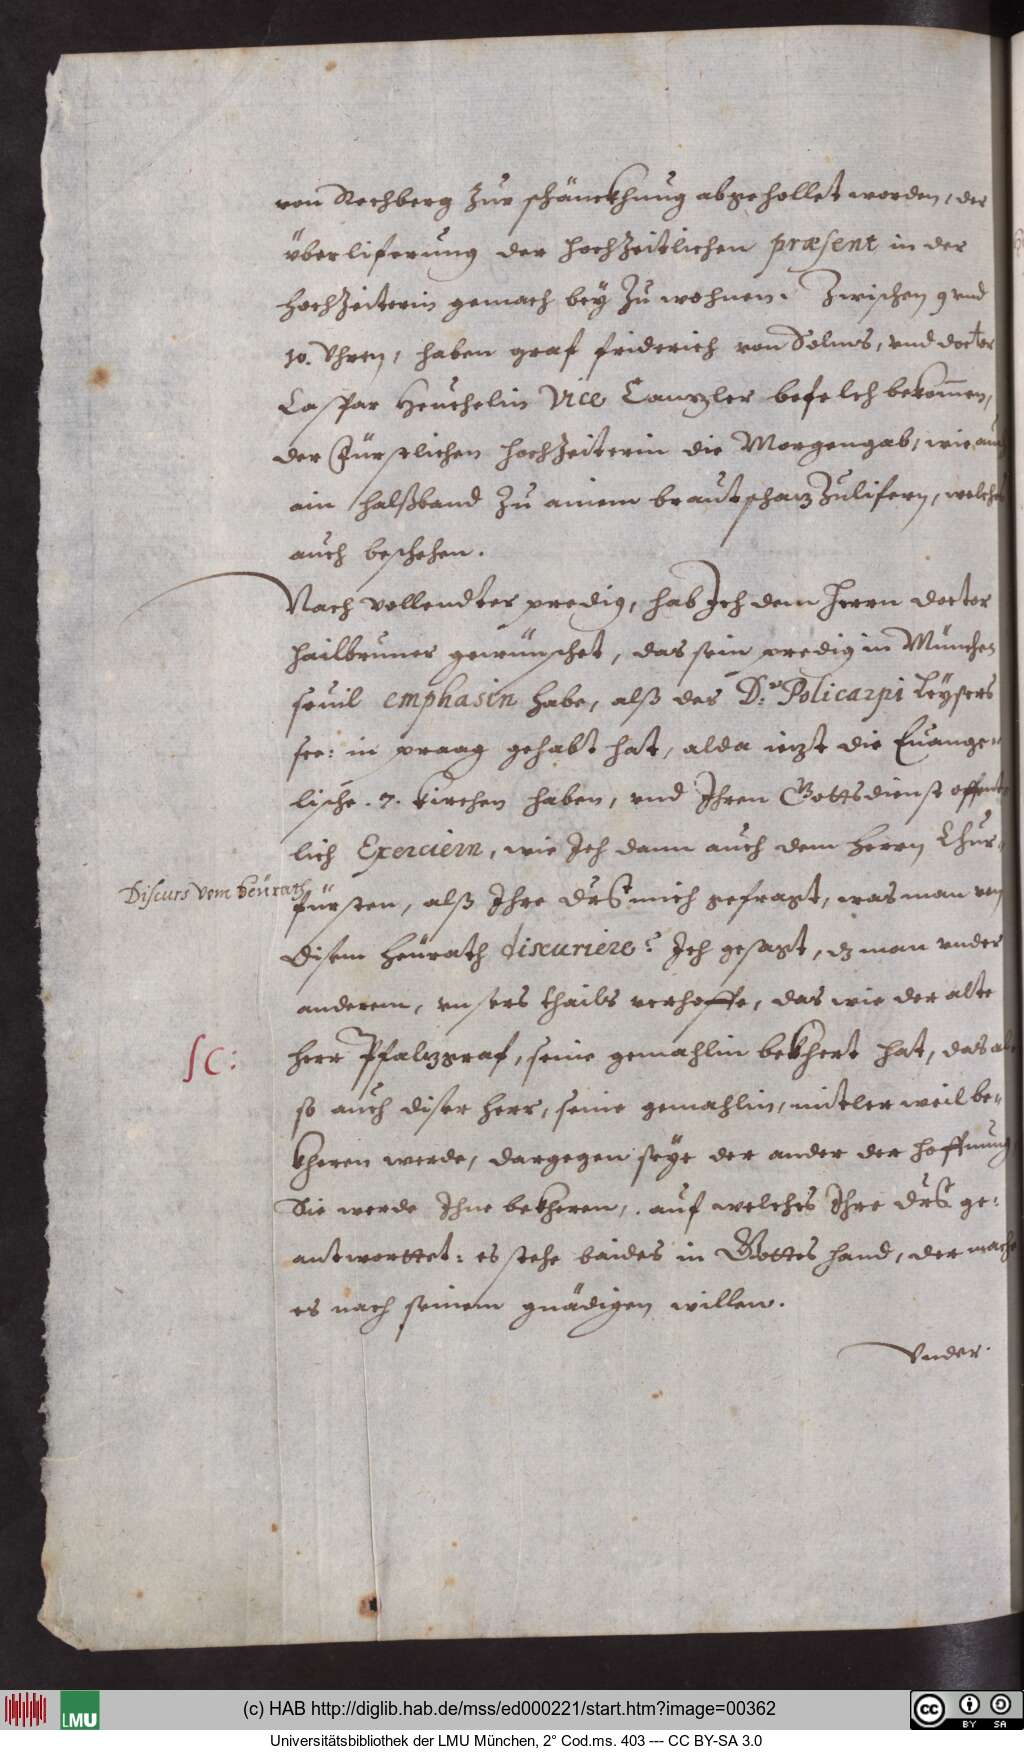 von Rechberg zur schänckhung abgehollet worden, der
überliferung der hochzeitlichen præsent in der
hochzeiterin gemach bey zu wohnen. Zwischen 9 vnd
10. Vhren, haben graf friderich von Solms, vnd doctor
Caspar Heuchelin Vice Canzler befelch bekommen,
der Fürstlichen hochzeiterin die Morgengab, wie auch
ain halßband zu ainem brautschaz zulifern, welches
auch beschehen.
Nach vollendter predig, hab Jch dem herrn doctor
hailbruner gewünschet, das sein predig in München
souil emphasin habe, alß des D: Policarpi Leysers
see: in praag gehabt hat, alda iezt die Euange-
lische .7. kirchen haben, vnd Jhren Gottsdienst offent-
lich Exerciern, wie Jch dann auch dem herrn Chur-
Discurs vom heürath
fürsten, alß Jhre Drlt mich gefragt, was man von
disem heürath discuriere? Jch gesagt, dz man vnder
anderem, vnsers thails verhoffe, das wie der alte
SC:
herr Pfalzgraf, seine gemahlin bekhert hat, das al
so auch diser herr, seine gemahlin, mitler weil be-
kheren werde, dargegen seye der ander der hoffnung
Sie werde Jhne bekheren, auf welches Jhre Drlt ge:
antworttet: es stehe baides in Gottes hand, der mache
es nach seinem gnädigen willen.
Vnder
(c) HAB http://diglib.hab.de/mss/ed000221/start.htm?image=00362
LMU
cc BY SA
Universitätsbibliothek der LMU München, 2° Cod.ms. 403 --- CC BY-SA 3.0